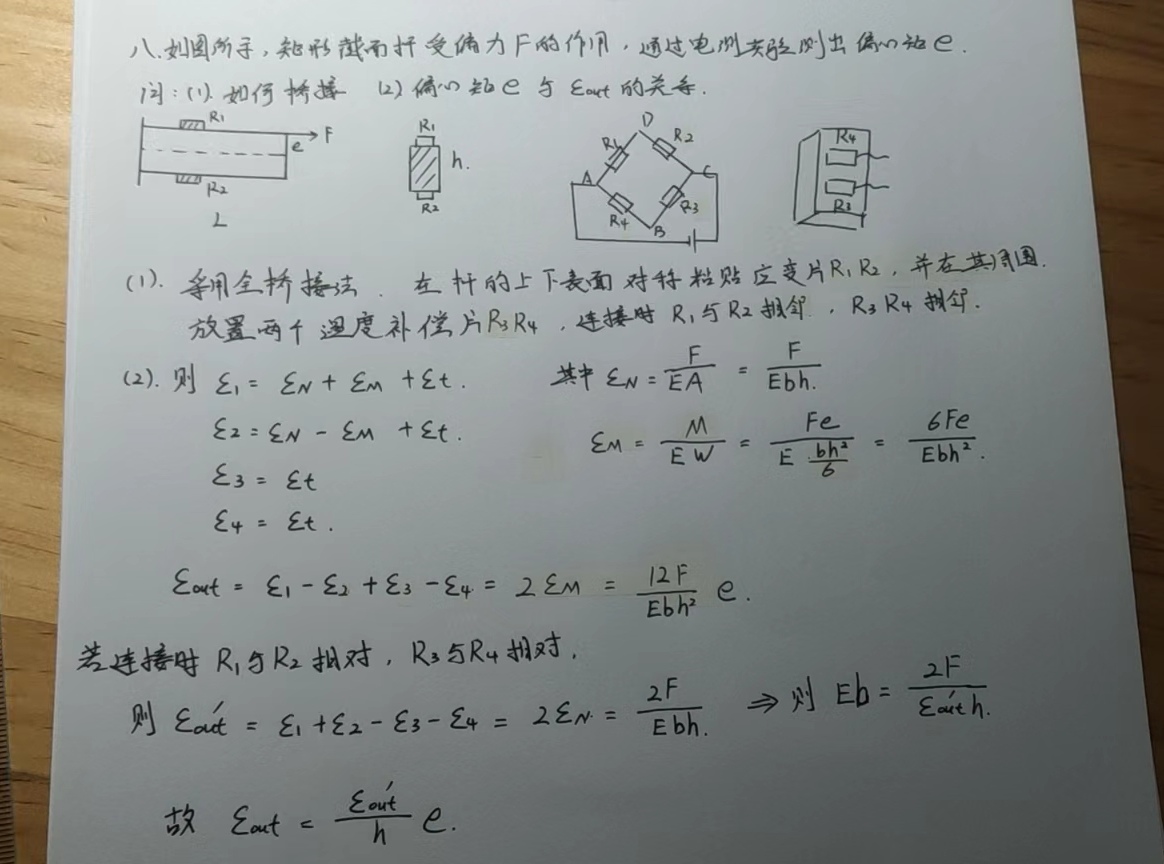 八.如图所示,矩形截面杆受偏力F的作用,通过电测实验测出偏心距e.
问:(1).如何桥接 (2)偏心距e与εout的关系.
R1 F e R2 L
R1 h. R2
D R1 R2 A C R4 R3 B
R4 R3
(1). 采用全桥接法. 在杆的上下表面对称粘贴应变片R1R2,并在其周围.
放置两个温度补偿片R3R4,连接时R1与R2相邻,R3R4相邻.
(2). 则 ε1 = εN + εM + εt. 其中 εN = F/EA = F/Ebh.
ε2 = εN - εM + εt. εM = M/EW = Fe/(E·bh²/6) = 6Fe/Ebh².
ε3 = εt
ε4 = εt.
εout = ε1 - ε2 + ε3 - ε4 = 2εM = 12F/Ebh² e.
若连接时R1与R2相对,R3与R4相对,
则 εout′ = ε1 + ε2 - ε3 - ε4 = 2εN = 2F/Ebh. ⇒ 则 Eb = 2F/εout′h.
故 εout = εout′/h e.